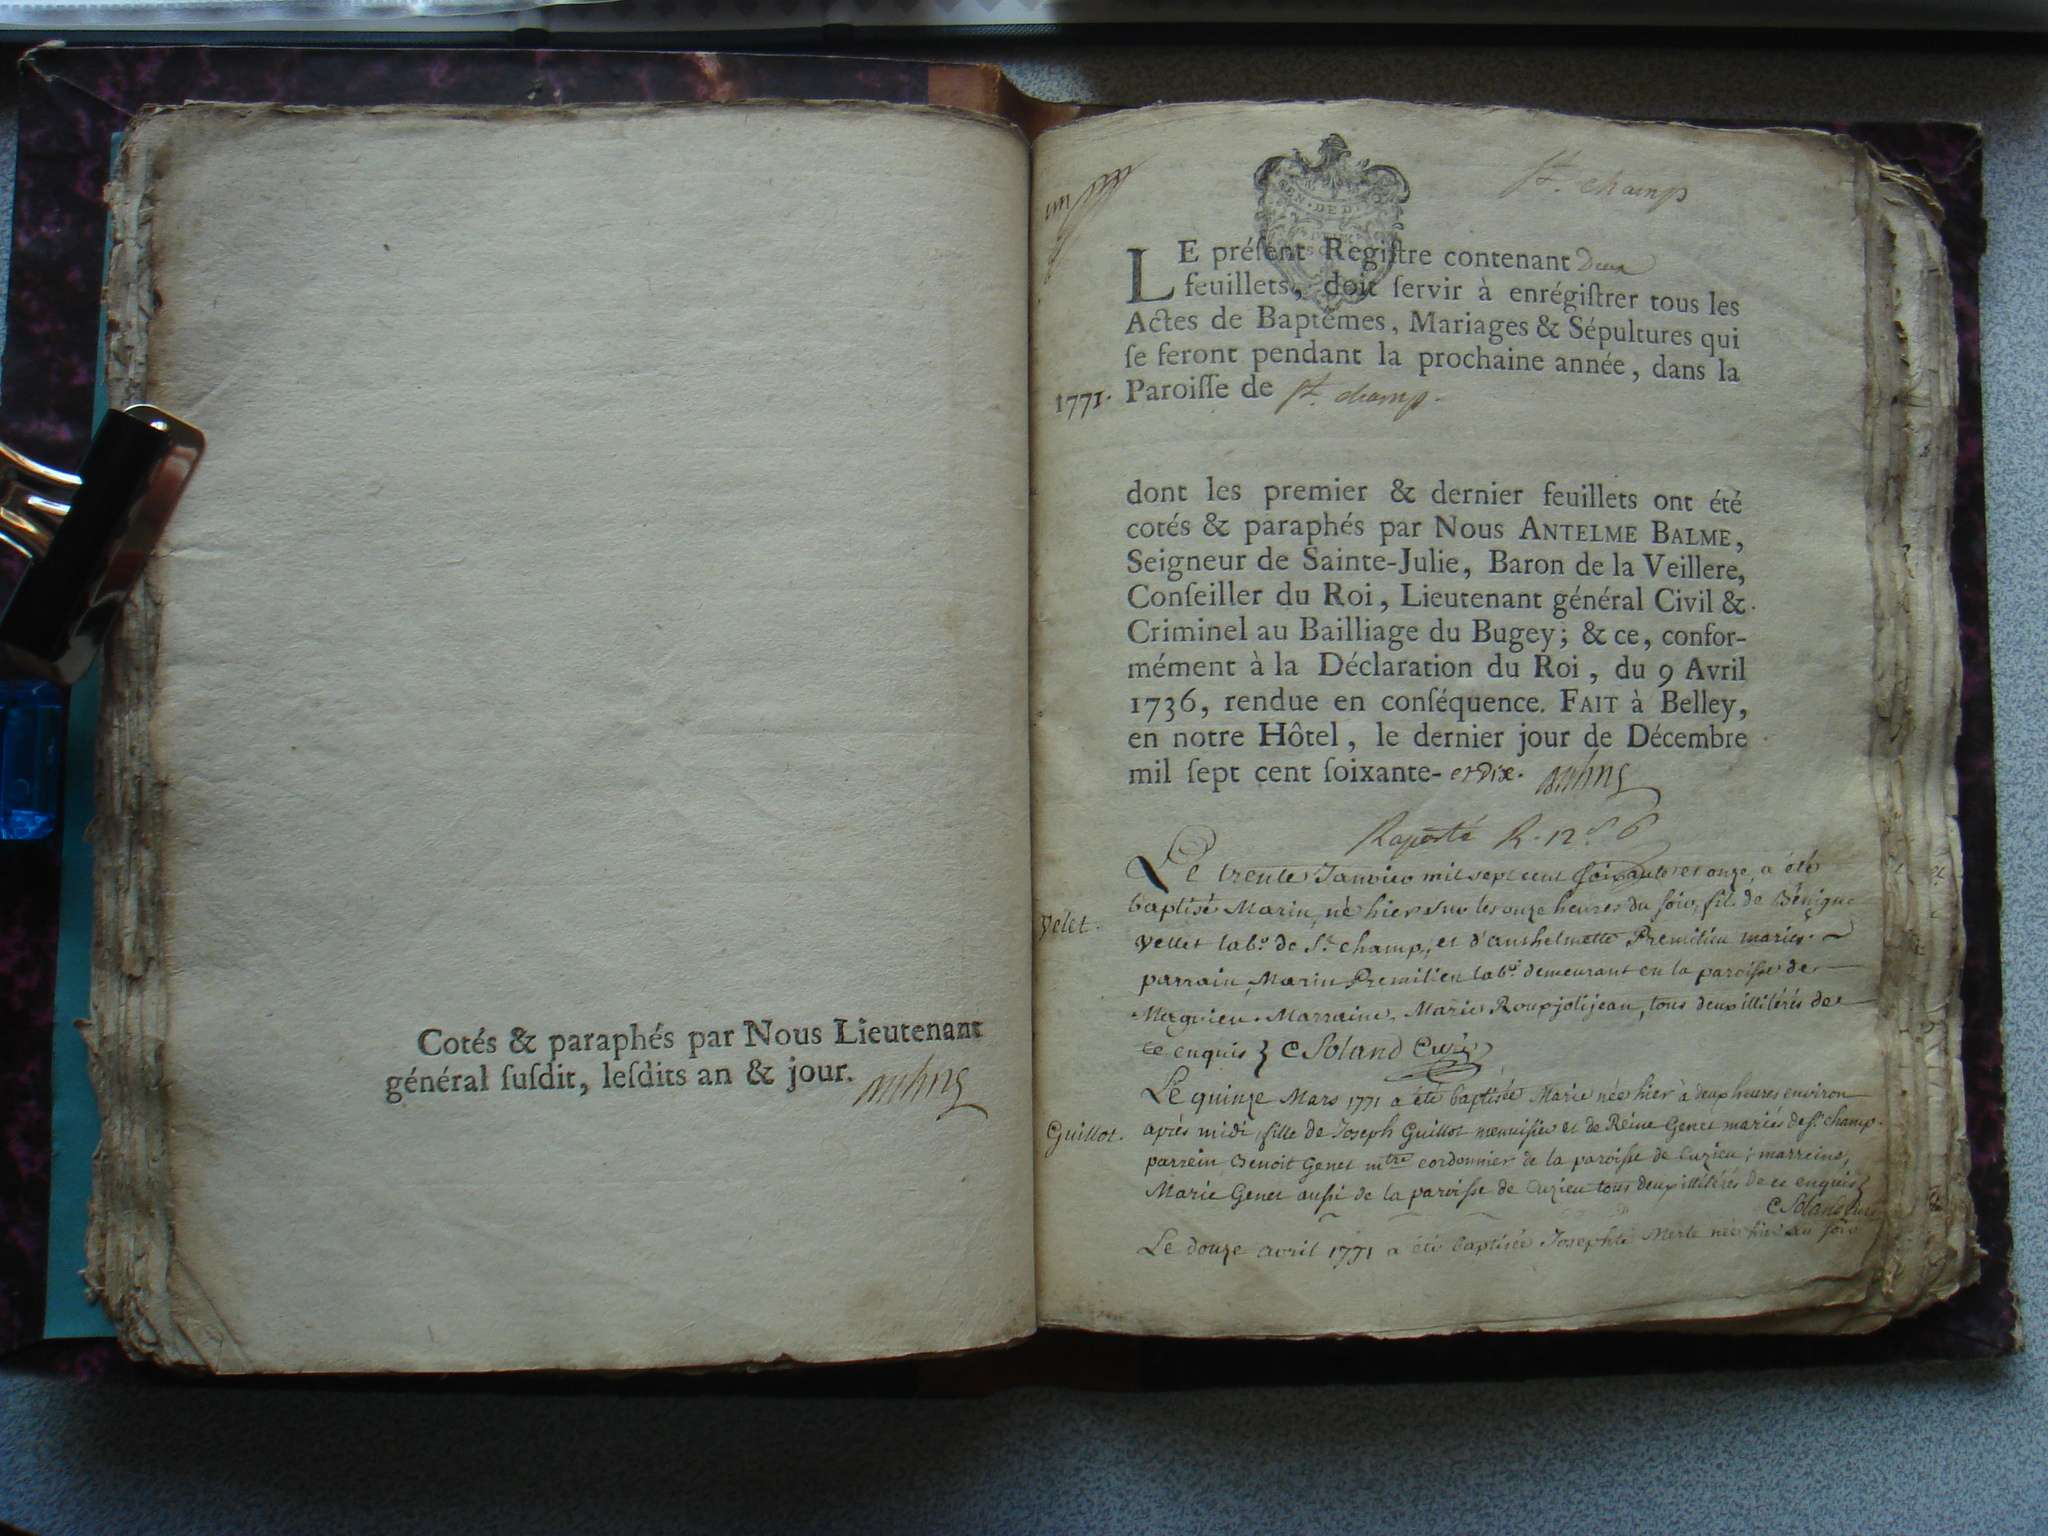 Cotés & paraphés par Nous Lieutenant
général ſuſdit, leſdits an & jour.
St. champ
LE préſent Regiſtre contenant Deux
feuillets, doit ſervir à enrégiſtrer tous les
Actes de Baptêmes, Mariages & Sépultures qui
ſe feront pendant la prochaine année, dans la
1771. Paroiſſe de St. champ.
dont les premier & dernier feuillets ont été
cotés & paraphés par Nous ANTELME BALME,
Seigneur de Sainte-Julie, Baron de la Veillere,
Conſeiller du Roi, Lieutenant général Civil &
Criminel au Bailliage du Bugey; & ce, confor-
mément à la Déclaration du Roi, du 9 Avril
1736, rendue en conſéquence. FAIT à Belley,
en notre Hôtel, le dernier jour de Décembre
mil ſept cent ſoixante- et dix.
Raporté R. 12 s 6
Le trente Janvier mil sept cent soixante et onze, a été
baptisé Marin, né hier sur les onze heures du soir, fils de Bénigne
Velet. Vellet labr. de St. champ, et d'anthelmette Premilieu mariés.
parrain, Marin Premilieu labr. demeurant en la paroisse de
Marraine, Marie Roupjolijean, tous deux illitérés de
ce enquis } C Soland Curé
Le quinze Mars 1771 a été baptisée Marie née hier à deux heures environ
Guillot. après midi, fille de Joseph Guillot menuisier et de Reine Genet mariés de St champ.
parrein Benoit Genet mtre cordonnier de la paroisse de Cuzieu; marreine,
Marie Genet aussi de la paroisse de Cuzieu tous deux illitérés de ce enquis }
C Soland Curé
Le douze avril 1771 a été baptisée Josephte Merle née hier au soir